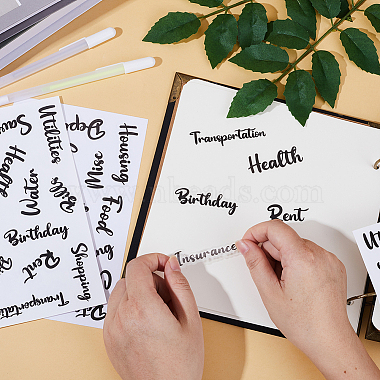 Transportation
Health
Birthday
Rent
Insurance
Savi
Utilities
Health
Water
Bills
Birthday
Rent
Shopping
Transportation
Housing
Misc
Food